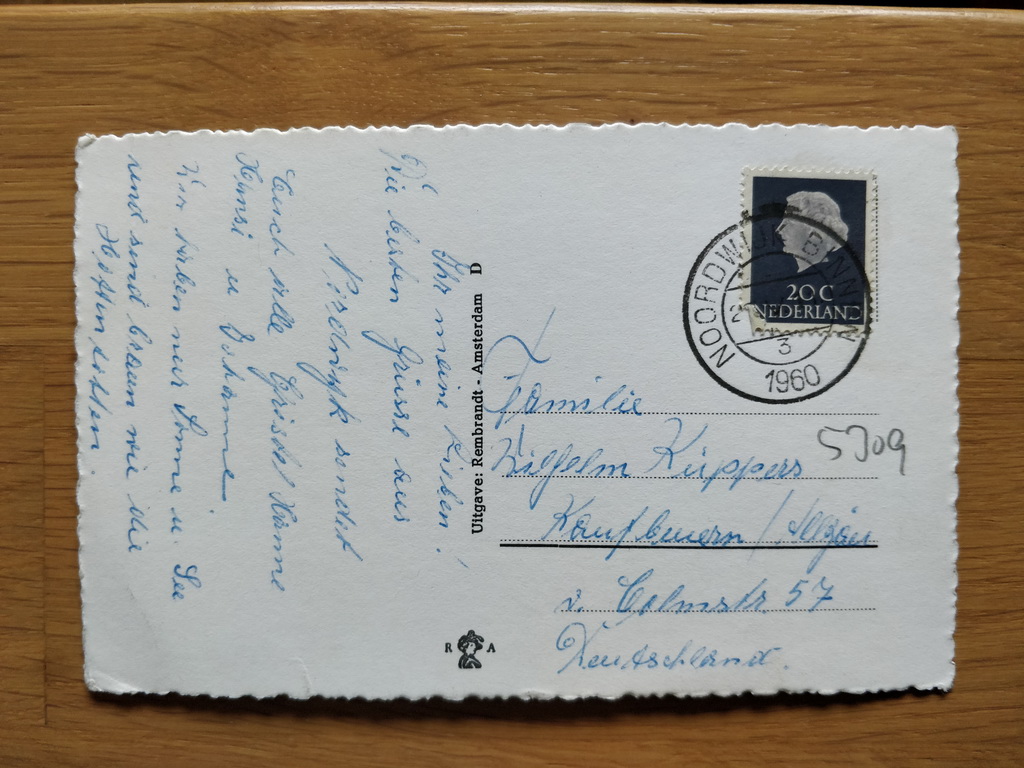 Ihr meine Lieben!
Die besten Grüsse aus
Nordwyk sendet
Euch alle
Hansi u Johanna.
Wir haben nur Sonne u. See
und sind braun wie die
Hottentotten.
Uitgave: Rembrandt - Amsterdam D
R A
NOORDWIJK BINNEN
3
1960
20 C
NEDERLAND
Familie
Wilhelm Küppers
5309
Kaufbeuern / Allgäu
v. Colmstr 57
Deutschland.